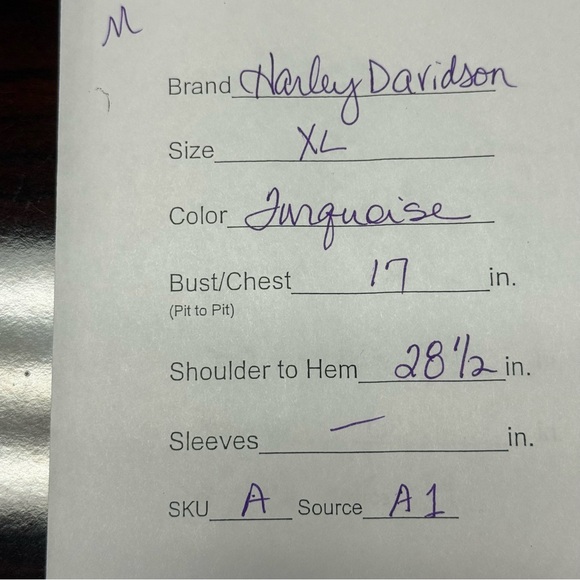 M
Brand Harley Davidson
Size XL
Color Turquoise
Bust/Chest 17 in.
(Pit to Pit)
Shoulder to Hem 28 1/2 in.
Sleeves — in.
SKU A Source A1